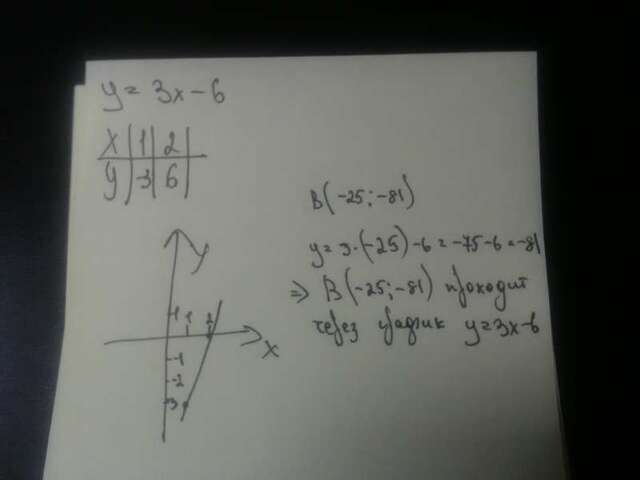 y = 3x - 6
x | 1 | 2 |
y | -3 | 6 |
y
1
1 2
x
-1
-2
-3
B(-25; -81)
y = 3·(-25) - 6 = -75 - 6 = -81
⇒ B(-25; -81) проходит
через график y = 3x - 6